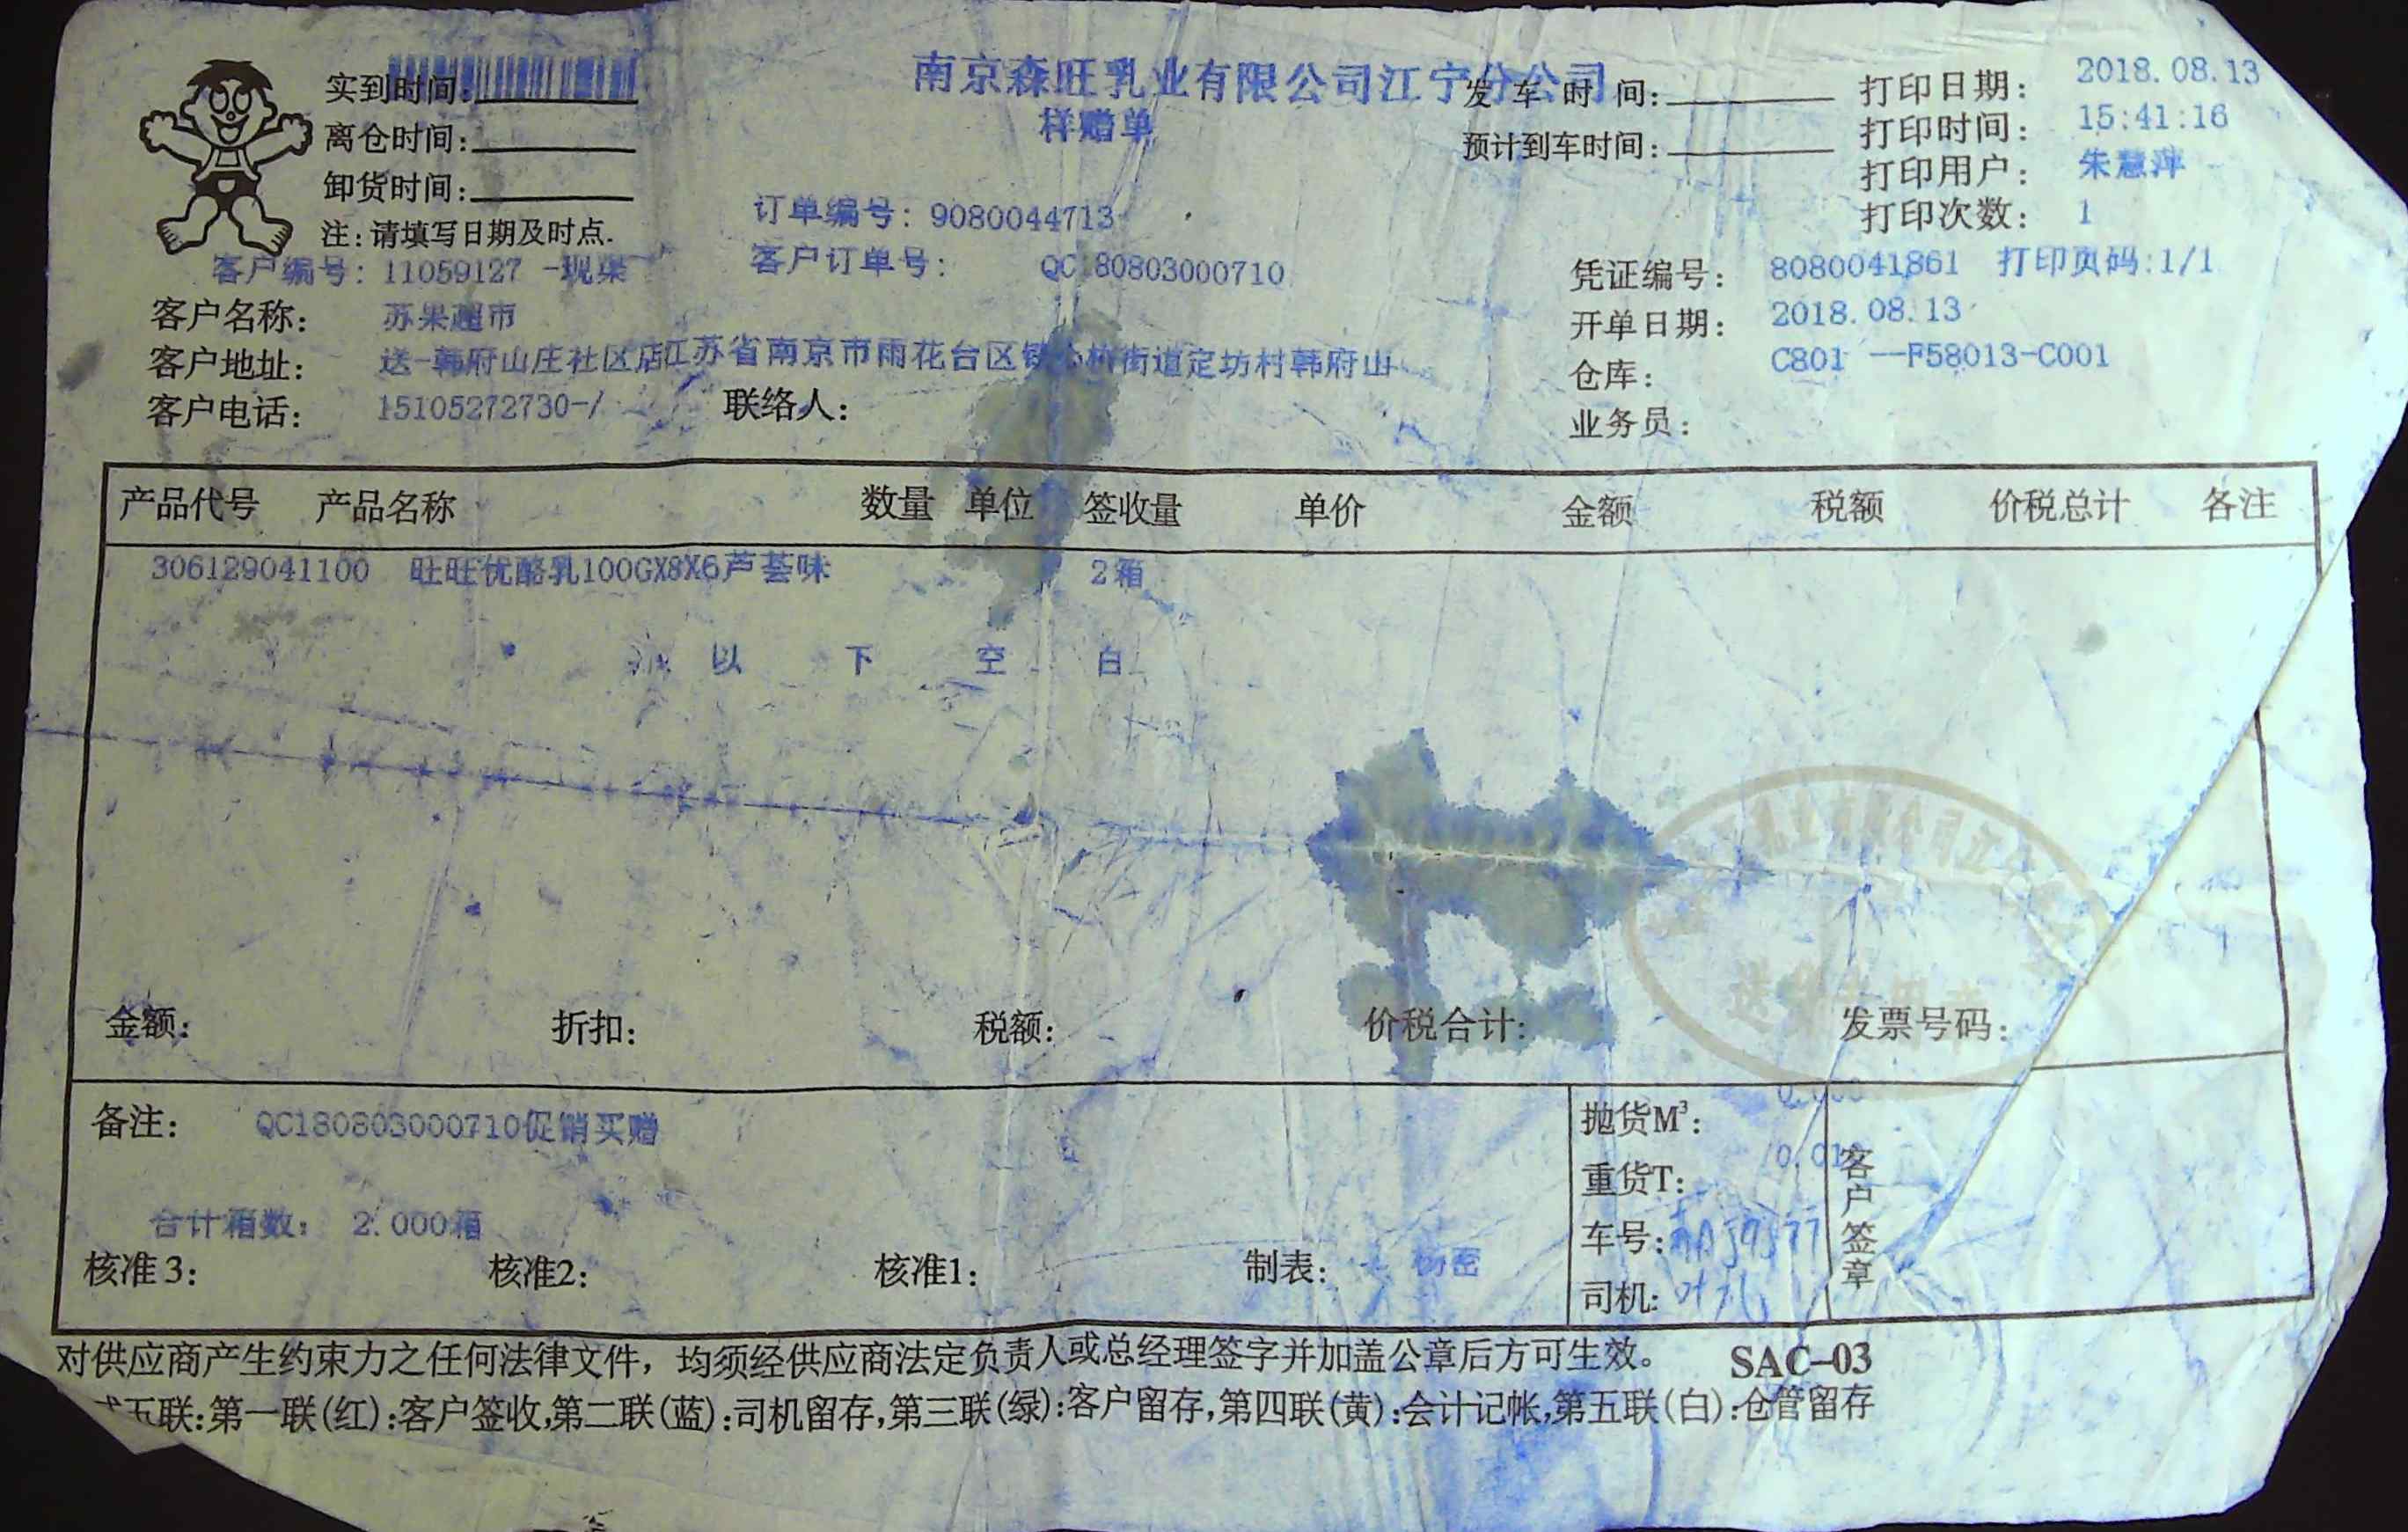 南京森旺乳业有限公司江宁分公司
样赠单
实到时间:
离仓时间:
卸货时间:
注:请填写日期及时点.
发车时间:
预计到车时间:
打印日期: 2018.08.13
打印时间: 15:41:16
打印用户: 朱慧萍
打印次数: 1
订单编号: 9080044713
客户编号: 11059127 -现渠
客户订单号: QC180803000710
凭证编号: 8080041861 打印页码:1/1
客户名称: 苏果超市
开单日期: 2018.08.13
客户地址: 送-韩府山庄社区店江苏省南京市雨花台区铁心桥街道定坊村韩府山
仓库: C801 --F58013-C001
客户电话: 15105272730-/ 联络人:
业务员:
产品代号 产品名称 数量 单位 签收量 单价 金额 税额 价税总计 各注
306129041100 旺旺优酪乳100GX8X6芦荟味 2箱
以 下 空 白
金额: 折扣: 税额: 价税合计: 发票号码:
备注: QC180803000710促销买赠
合计箱数: 2.000箱
核准3: 核准2: 核准1: 制表:
抛货M³:
重货T:
车号:
司机:
客户签章
对供应商产生约束力之任何法律文件，均须经供应商法定负责人或总经理签字并加盖公章后方可生效。 SAC-03
五联:第一联(红):客户签收,第二联(蓝):司机留存,第三联(绿):客户留存,第四联(黄):会计记帐,第五联(白):仓管留存